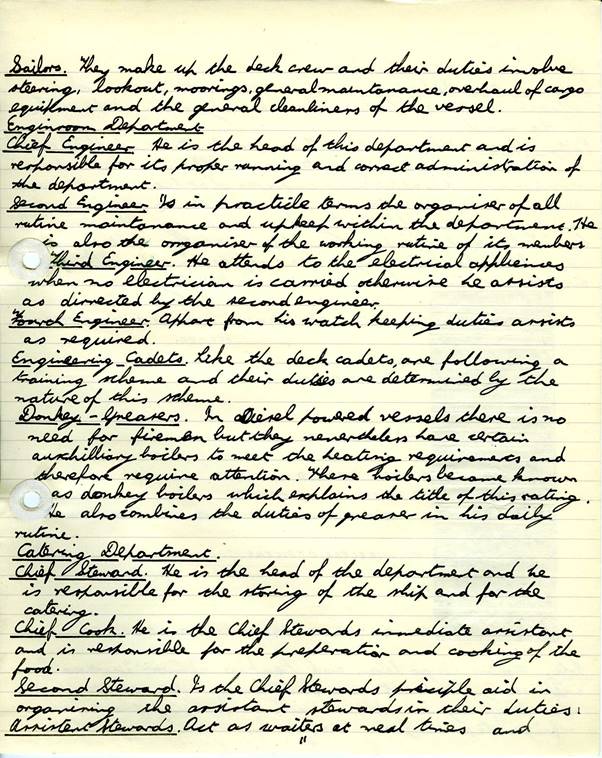 Sailors. They make up the deck crew and their duties involve
steering, lookout, moorings, general maintonance, overhaul of cargo
equipment and the general cleanliness of the vessel.
Enginroom Department
Chief Engineer. He is the head of this department and is
responsible for its proper running and correct administration of
the department.
Second Engineer Is in practicle terms the organiser of all
rutine maintonance and upkeep within the department. He
is also the organiser of the working rutine of its members
Third Engineer. He attends to the electrical appliences
when no electrician is carried otherwise he assists
as dirrected by the second engineer.
Fourth Engineer. Appart from his watch keeping duties assists
as required.
Engineering Cadets. Like the deck cadets, are following a
training scheme and their duties are determined by the
nature of this scheme.
Donkey-Greasers. In Diesel powered vessels there is no
need for firemen but they nevertheless have certain
auxhilliary boilers to meet the heating requirements and
therefore require attention. These boilers became known
as donkey boilers which explains the title of this rating.
He also combines the duties of greaser in his daily
rutine.
Catering Department.
Chief Steward. He is the head of the department and he
is responsible for the storing of the ship and for the
catering.
Chief Cook. He is the Chief Stewards immediate assistant
and is responsible for the preperation and cooking of the
food.
Second Steward. Is the Chief Stewards principle aid in
organising the assistant stewards in their duties.
Assistent Stewards. Act as waiters at meal times and
11